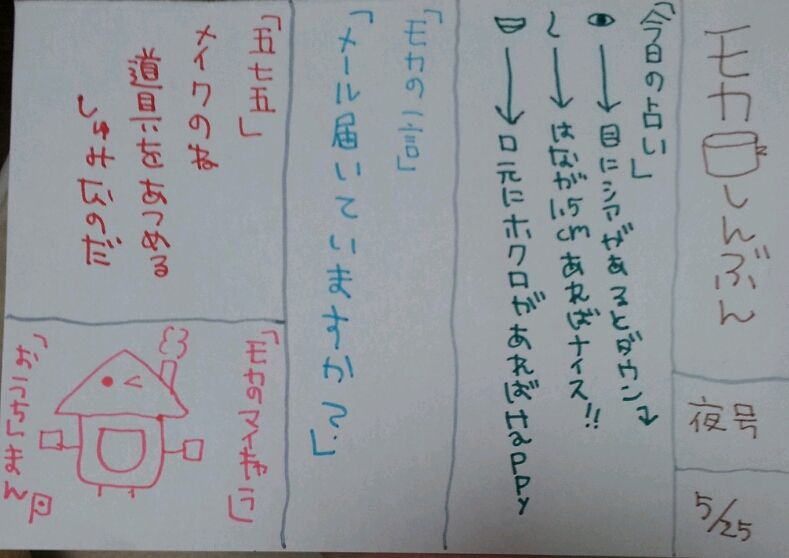 モカしんぶん
夜号
5/25
「今日の占い」
→目にシアがあるとダウン↷
→はなが1.5cmあればナイス!!
→口元にホクロがあればHappy
「モカの一言」
「メール届いていますか?」
「五七五」
メイクのね
道具をあつめる
しゅみなのだ
「モカのマイキャラ」
「おうちくまん